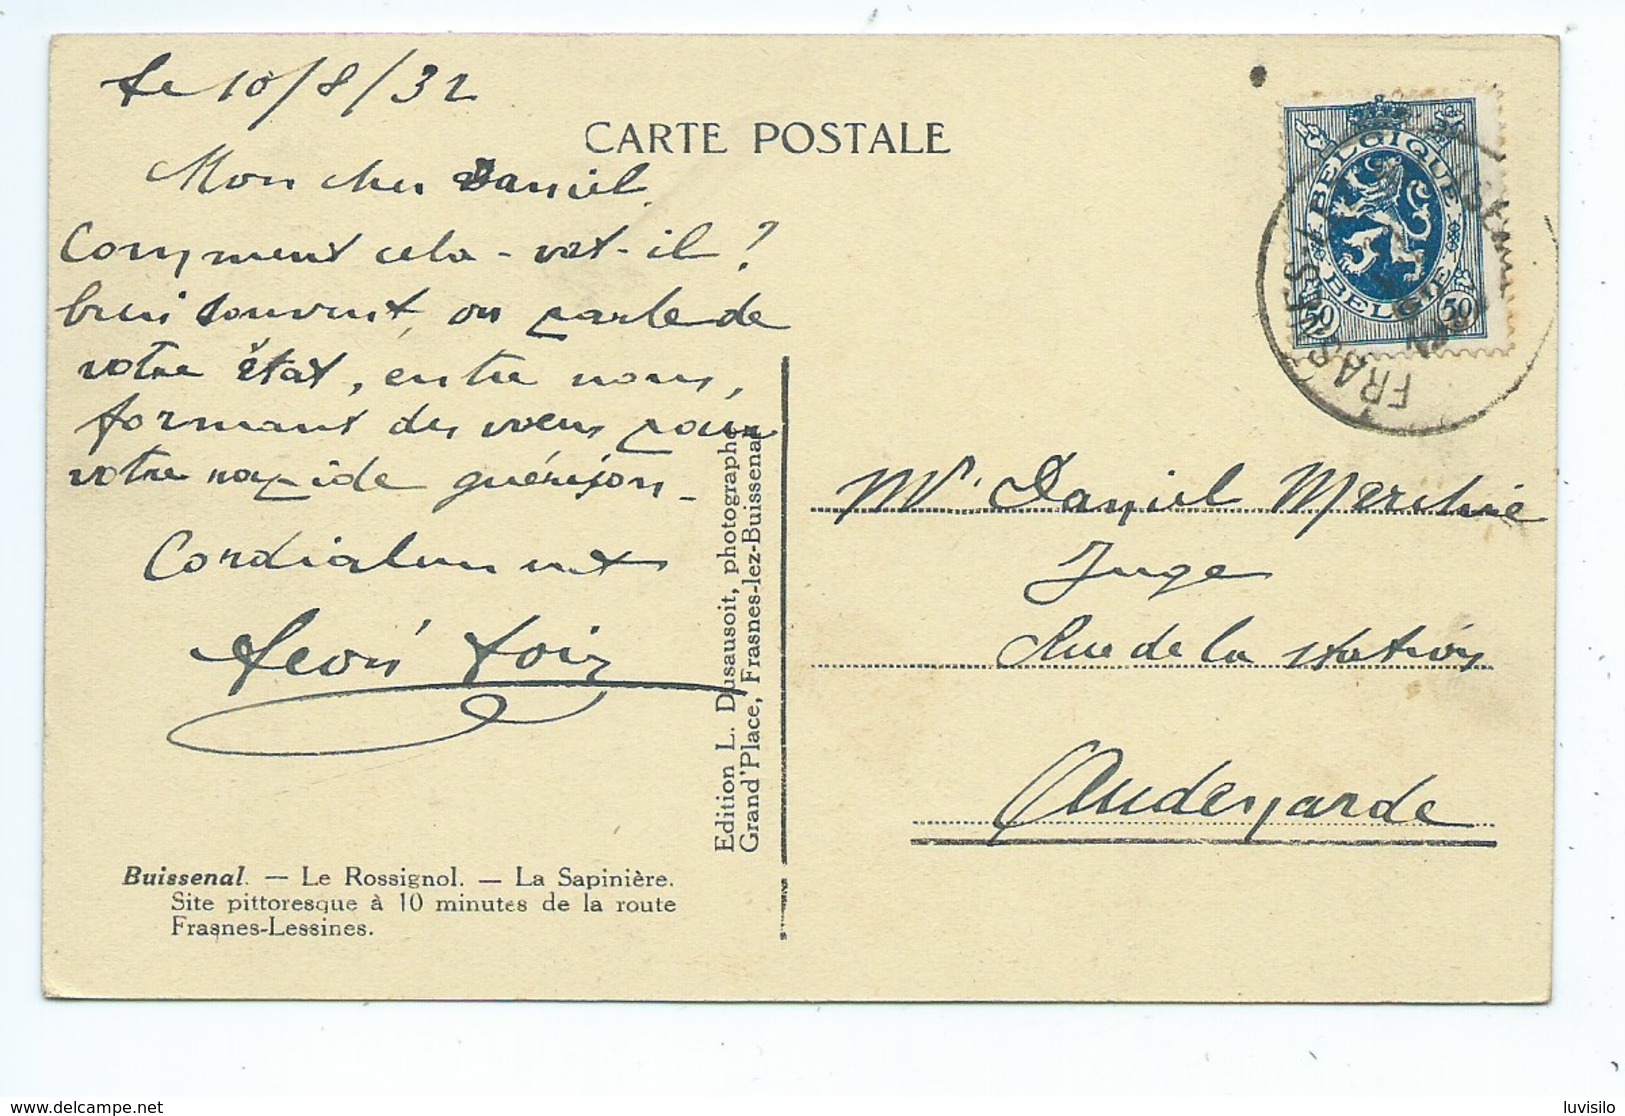 le 10/8/32
CARTE POSTALE
Mon cher Daniel.
Comment cela-vat-il?
bien souvent, on parle de
votre état, entre nous,
formant des voeux pour
votre rapide guérison-
Cordialement
Léon
Buissenal. — Le Rossignol. — La Sapinière.
Site pittoresque à 10 minutes de la route
Frasnes-Lessines.
Edition L. Dusausoit, photographe
Grand'Place, Frasnes-lez-Buissenal
BELGIQUE
BELGIE
50 50
FRASNES
Mr. Daniel Merchie
Juge
Rue de la station
Audenarde
luvisilo